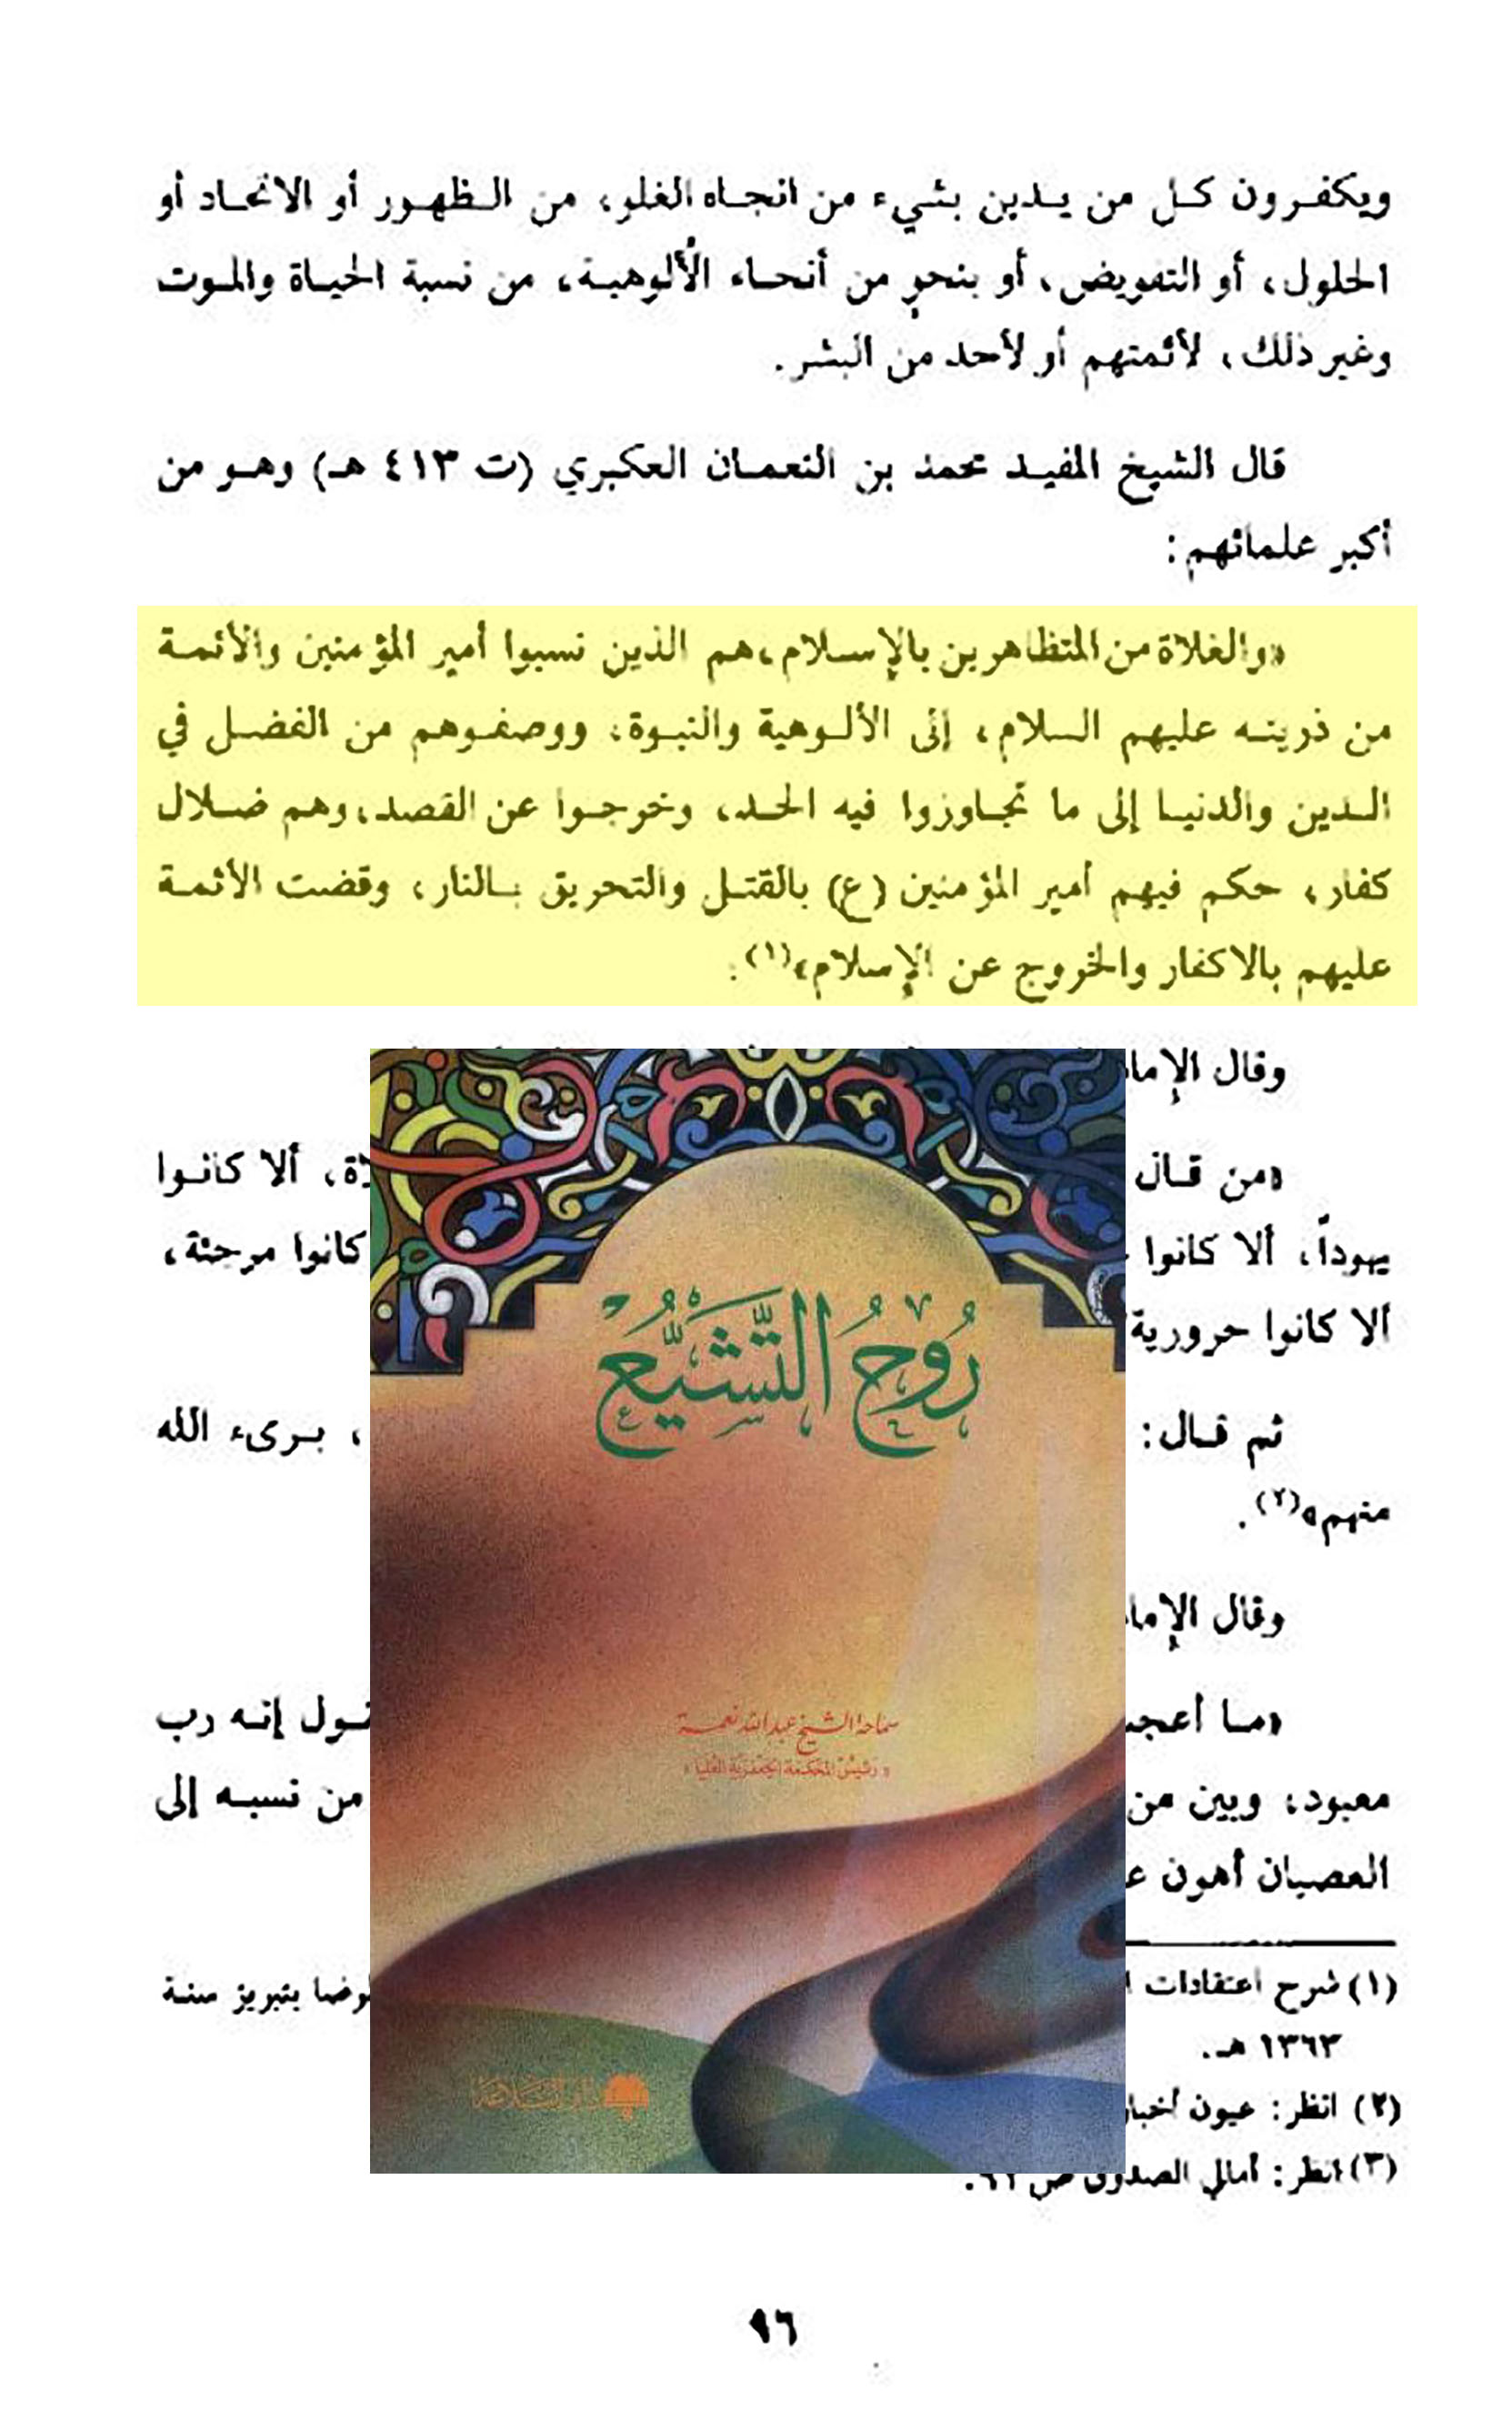 ويكفرون كل من يدين بشيء من اتجاه الغلو، من الظهور أو الاتحاد أو
الحلول، أو التفويض، أو بنحوٍ من أنحاء الأُلوهية، من نسبة الحياة والموت
وغير ذلك، لأئمتهم أو لأحد من البشر.
قال الشيخ المفيد محمد بن النعمان العكبري (ت ٤١٣ هـ) وهو من
أكبر علمائهم:
«والغلاة من المتظاهرين بالإسلام، هم الذين نسبوا أمير المؤمنين والأئمة
من ذريته عليهم السلام، إلى الألوهية والنبوة، ووصفوهم من الفضل في
الدين والدنيا إلى ما تجاوزوا فيه الحد، وخرجوا عن القصد، وهم ضلال
كفار، حكم فيهم أمير المؤمنين (ع) بالقتل والتحريق بالنار، وقضت الأئمة
عليهم بالاكفار والخروج عن الإسلام»(١).
وقال
«من قال ألا كانوا
يهوداً، ألا كانوا كانوا مرجئة،
ألا كانوا حرورية
ثم قال: ، برىء الله
منهم»(٢).
وقال
«ما إنه رب
معبود، وبين من من نسبه إلى
العصيان أهون
رُوحُ التَّشَيُّع
سماحة الشيخ عبد الله نعمة
«رئيس المحكمة الجعفرية العليا»
(١) شرح اعتقادات بتبريز سنة
١٣٦٣ هـ.
(٢) انظر: عيون
(٣) انظر: أمالي الصدوق ص
٩٦